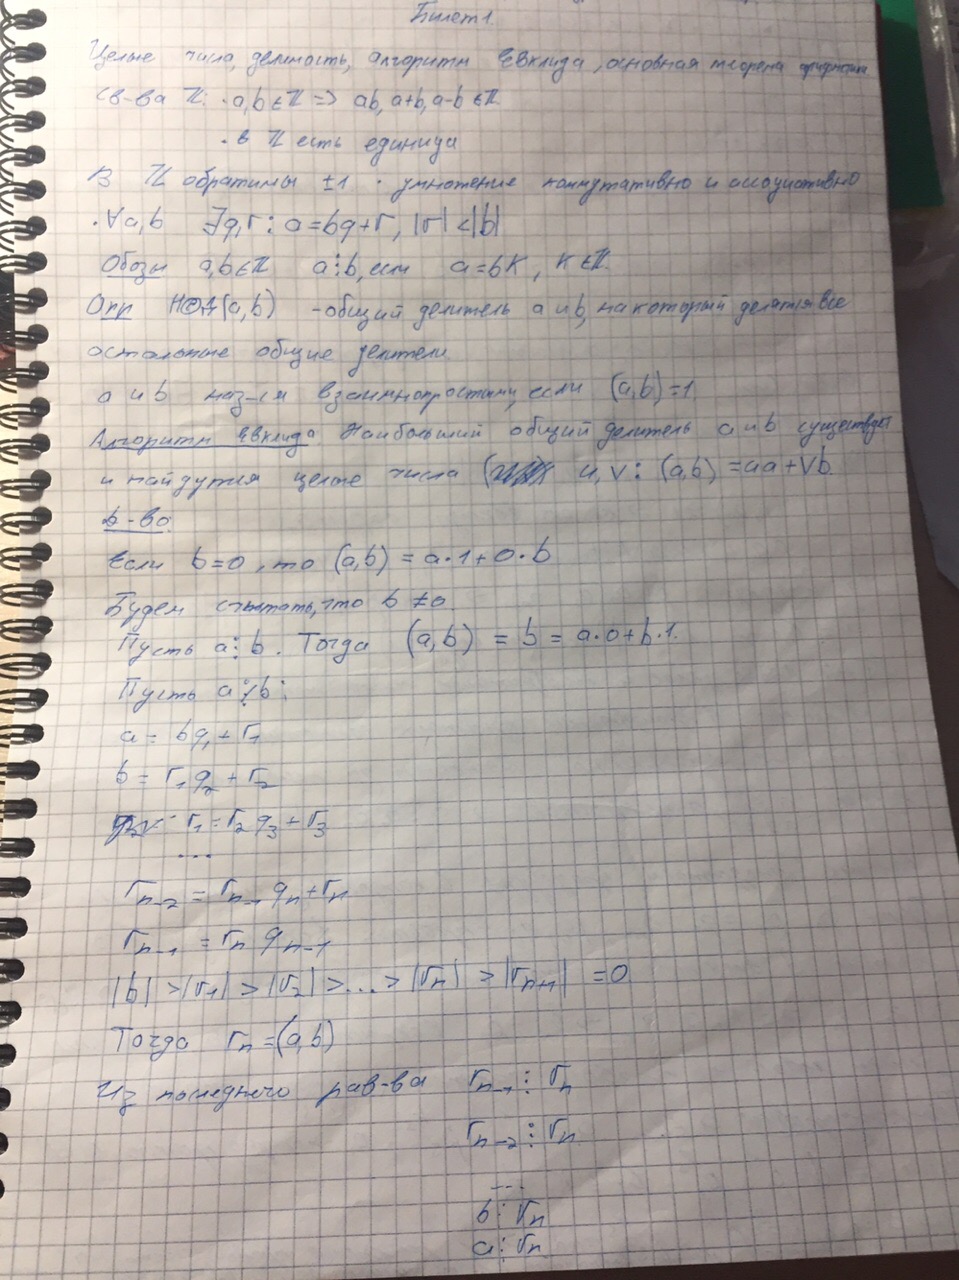 Билет 1.
Целые числа, делимость, алгоритм Евклида, основная теорема арифметики
Св-ва ℤ: · a,b ∈ ℤ => ab, a+b, a-b ∈ ℤ.
· в ℤ есть единица
В ℤ обратимы ±1 · умножение коммутативно и ассоциативно
· ∀a,b ∃q,r : a=bq+r, |r|<|b|
Обозн a,b∈ℤ a⋮b, если a=bk, k∈ℤ.
Опр НОД(a,b) - общий делитель a и b, на который делятся все
остальные общие делители.
a и b наз-ся взаимнопростыми, если (a,b)=1
Алгоритм Евклида. Наибольший общий делитель a и b существует
и найдутся целые числа ( u,v : (a,b) = ua+vb.
Д-во:
Если b=0, то (a,b) = a·1+0·b
Будем считать, что b≠0.
Пусть a⋮b. Тогда (a,b) = b = a·0+b·1.
Пусть a⋮̸b:
a = bq₁+r₁
b = r₁q₂+r₂
r₁=r₂q₃+r₃
...
rₙ₋₂ = rₙ₋₁qₙ+rₙ
rₙ₋₁ = rₙqₙ₋₁
|b|>|r₁|>|r₂|>...>|rₙ|>|rₙ₊₁| =0
Тогда rₙ=(a,b)
Из последнего рав-ва rₙ₋₁⋮rₙ
rₙ₋₂⋮rₙ
...
b⋮rₙ
a⋮rₙ